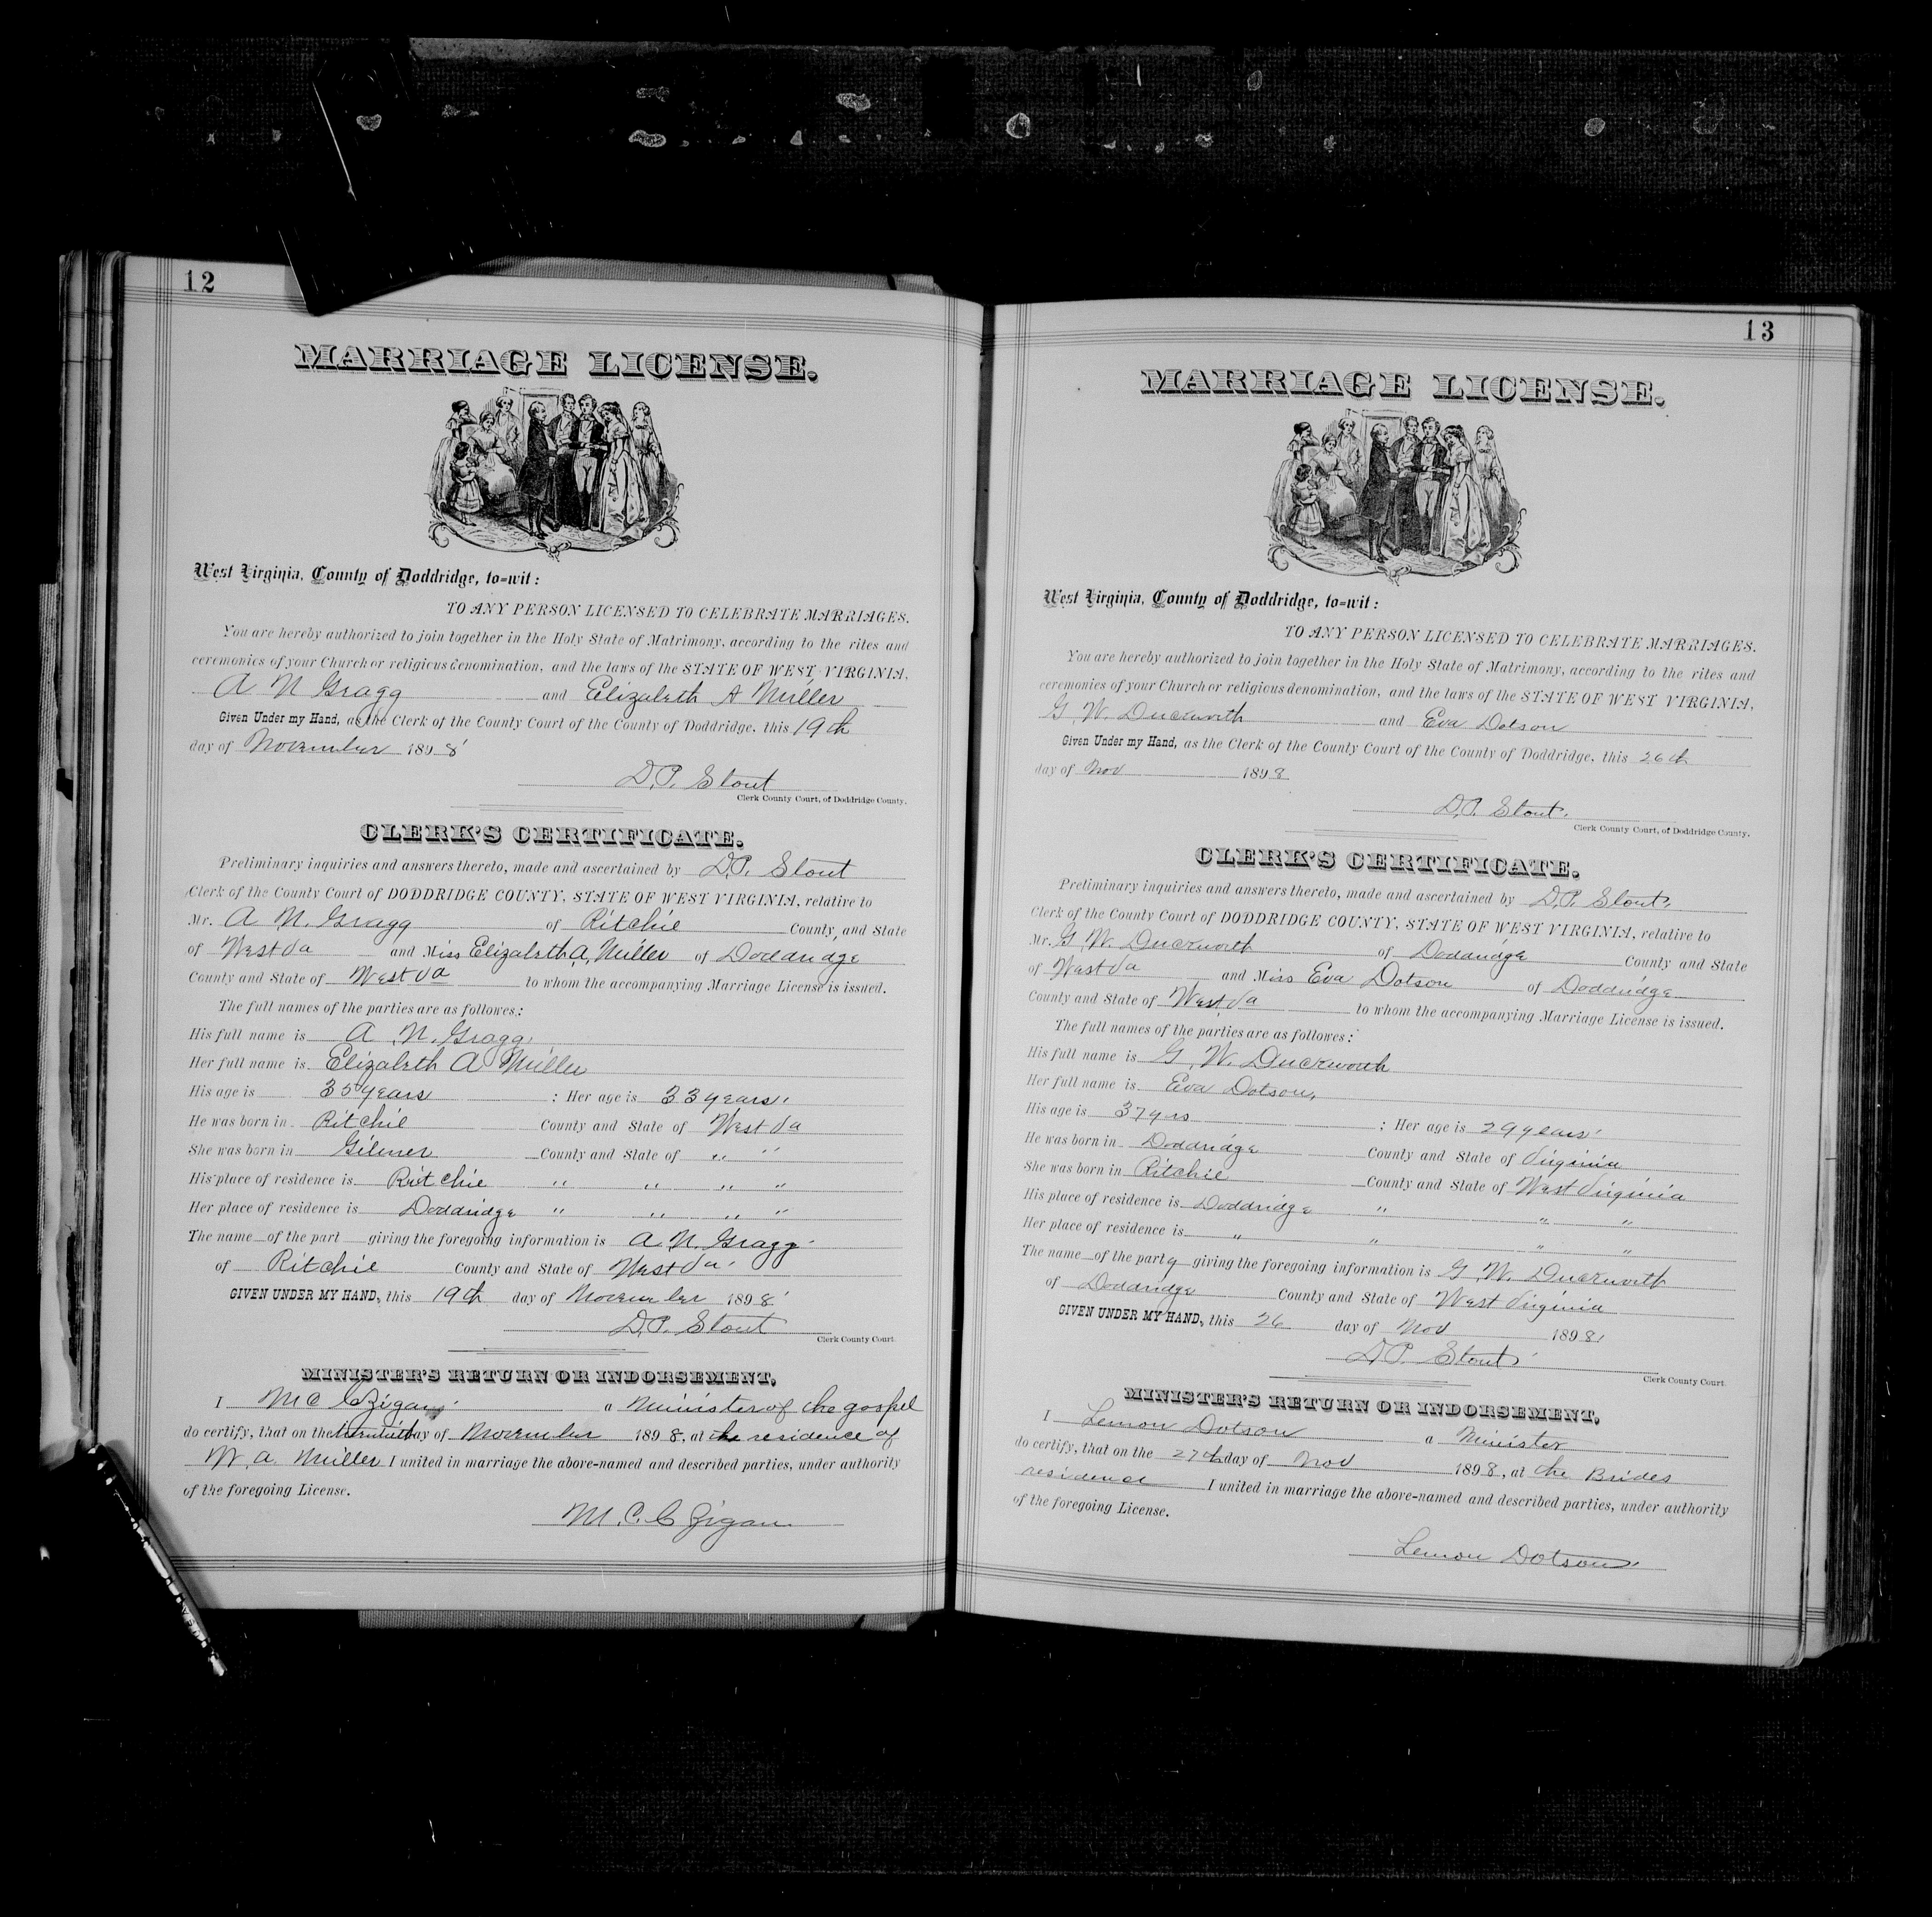 12
MARRIAGE LICENSE.
West Virginia, County of Doddridge, to=wit:
TO ANY PERSON LICENSED TO CELEBRATE MARRIAGES.
You are hereby authorized to join together in the Holy State of Matrimony, according to the rites and
ceremonies of your Church or religious denomination, and the laws of the STATE OF WEST VIRGINIA,
A N Gragg and Elizabeth A Miller
Given Under my Hand, as the Clerk of the County Court of the County of Doddridge, this 19th
day of November 1898
D.P. Stout
Clerk County Court, of Doddridge County.
CLERK'S CERTIFICATE.
Preliminary inquiries and answers thereto, made and ascertained by D.P. Stout
Clerk of the County Court of DODDRIDGE COUNTY, STATE OF WEST VIRGINIA, relative to
Mr. A N. Gragg of Ritchie County, and State
of West Va and Miss Elizabeth A. Miller of Doddridge
County and State of West Va to whom the accompanying Marriage License is issued.
The full names of the parties are as followes:
His full name is A. N. Gragg
Her full name is Elizabeth A Miller
His age is 35 years : Her age is 33 years.
He was born in Ritchie County and State of West Va
She was born in Gilmer County and State of " "
His place of residence is Ritchie " " " "
Her place of residence is Doddridge " " " "
The name of the part giving the foregoing information is A. N. Gragg
of Ritchie County and State of West Va.
GIVEN UNDER MY HAND, this 19th day of November 1898
D.P. Stout
Clerk County Court.
MINISTER'S RETURN OR INDORSEMENT,
I M C a Minister of the gospel
do certify, that on the day of November 1898, at the residence of
W. A. Miller I united in marriage the above-named and described parties, under authority
of the foregoing License.
M. C.
13
MARRIAGE LICENSE.
West Virginia, County of Doddridge, to=wit:
TO ANY PERSON LICENSED TO CELEBRATE MARRIAGES.
You are hereby authorized to join together in the Holy State of Matrimony, according to the rites and
ceremonies of your Church or religious denomination, and the laws of the STATE OF WEST VIRGINIA,
G. W. Duckworth and Eva Dotson
Given Under my Hand, as the Clerk of the County Court of the County of Doddridge, this 26th
day of Nov 1898
D.P. Stout.
Clerk County Court, of Doddridge County.
CLERK'S CERTIFICATE.
Preliminary inquiries and answers thereto, made and ascertained by D.P. Stout.
Clerk of the County Court of DODDRIDGE COUNTY, STATE OF WEST VIRGINIA, relative to
Mr. G. W. Duckworth of Doddridge County and State
of West Va and Miss Eva Dotson of Doddridge
County and State of West Va to whom the accompanying Marriage License is issued.
The full names of the parties are as followes:
His full name is G. W. Duckworth
Her full name is Eva Dotson,
His age is 37 yrs : Her age is 29 years
He was born in Doddridge County and State of Virginia
She was born in Ritchie County and State of West Virginia
His place of residence is Doddridge " " "
Her place of residence is " " " "
The name of the party giving the foregoing information is G. W. Duckworth
of Doddridge County and State of West Virginia
GIVEN UNDER MY HAND, this 26 day of Nov 1898
D.P. Stout
Clerk County Court.
MINISTER'S RETURN OR INDORSEMENT,
I Lemon Dotson a Minister
do certify, that on the 27th day of Nov 1898, at the Brides
residence I united in marriage the above-named and described parties, under authority
of the foregoing License.
Lemon Dotson